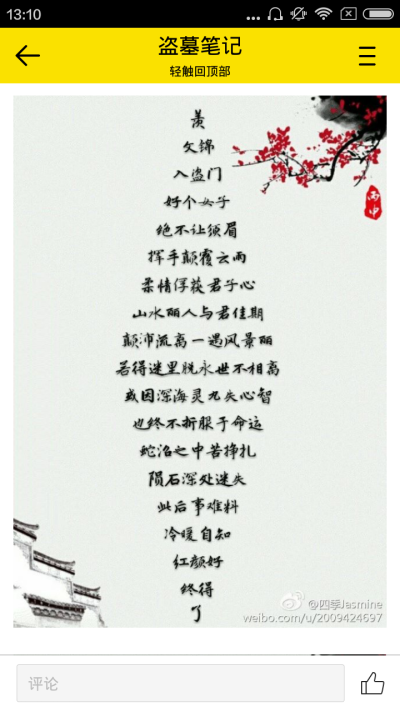 13:10
盗墓笔记
轻触回顶部
羡
文锦
入盗门
好个女子
绝不让须眉
挥手颠覆云雨
柔情俘获君子心
山水丽人与君佳期
颠沛流离一遇风景丽
若得谜里脱永世不相离
或因深海灵丸失心智
也终不折服于命运
蛇沼之中苦挣扎
陨石深处迷失
此后事难料
冷暖自知
红颜好
终得
了
@四季Iasmine
weibo.com/u/2009424697
评论